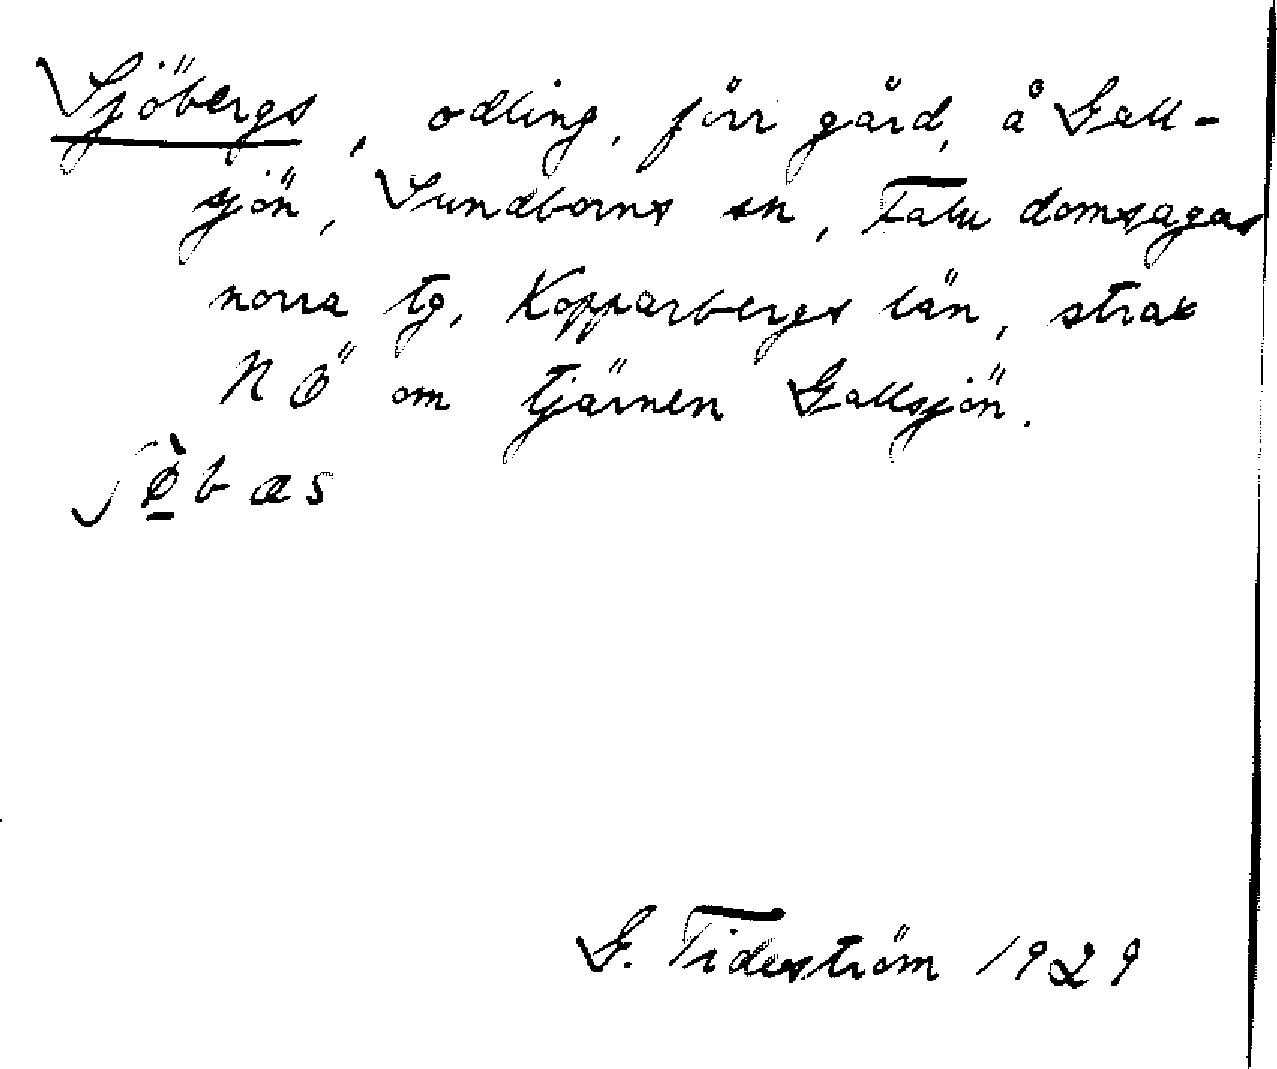 Sjöbergs, odling, förr gård, å Gall-
sjön, Sundborns sn, Falu domsagas
norra tg, Kopparbergs län, strax
NÖ om tjärnen Gallsjön.
ʃø̱̀bæs
G. Tideström 1929